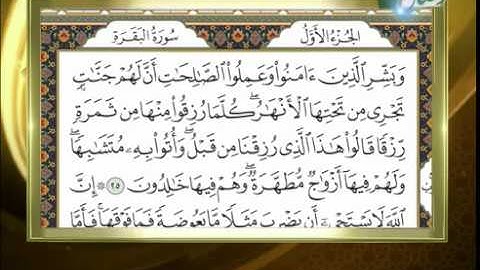 الجزء الأول
سورة البقرة
وَبَشِّرِ الَّذِينَ ءَامَنُوا وَعَمِلُوا الصَّالِحَاتِ أَنَّ لَهُمْ جَنَّاتٍ
تَجْرِي مِن تَحْتِهَا الْأَنْهَارُ ۖ كُلَّمَا رُزِقُوا مِنْهَا مِن ثَمَرَةٍ
رِّزْقًا قَالُوا هَٰذَا الَّذِي رُزِقْنَا مِن قَبْلُ ۖ وَأُتُوا بِهِ مُتَشَابِهًا ۖ
وَلَهُمْ فِيهَا أَزْوَاجٌ مُّطَهَّرَةٌ ۖ وَهُمْ فِيهَا خَالِدُونَ ٢٥ ۞ إِنَّ
اللَّهَ لَا يَسْتَحْيِي أَن يَضْرِبَ مَثَلًا مَّا بَعُوضَةً فَمَا فَوْقَهَا ۚ فَأَمَّا